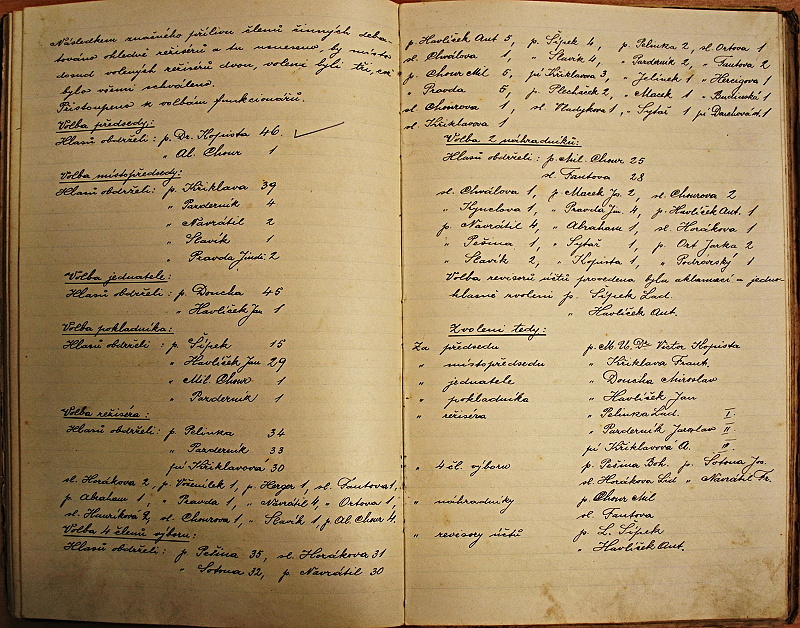 Následkem značného přílivu členů činných deba-
továno ohledně režisérů a tu usneseno, by místo
dosud volených režisérů dvou, voleni byli tři, což
bylo všemi schváleno.
Přistoupeno k volbám funkcionářů.
Volba předsedy:
Hlasů obdrželi: p. Dr. Kopista 46.
" Al. Chour 1
Volba místopředsedy:
Hlasů obdrželi: p. Křiklava 39
" Parderník 4
" Navrátil 2
" Slavík 1
" Pravda Jindř. 2
Volba jednatele:
Hlasů obdrželi: p. Doucha 45
" Havlíček Jan 1
Volba pokladníka:
Hlasů obdrželi: p. Šípek 15
" Havlíček Jan 29
" Mil. Chour 1
" Parderník 1
Volba režiséra:
Hlasů obdrželi: p. Pelinka 34
" Parderník 33
pí Křiklavová 30
sl. Horáková 2, p. Voženílek 1, p. Herger 1, sl. Fantova 1,
p. Abraham 1, " Pravda 1, " Navrátil 4, " Ortova 1,
sl. 2, sl. Chourova 1, " Slavík 1, p. Al. Chour 4.
Volba 4 členů výboru:
Hlasů obdrželi: p. Pešina 35, sl. Horáková 31
" Sotona 32, p. Navrátil 30
p. Havlíček Ant 5, p. Šípek 4, p. Pelinka 2, sl. Ortova 1
sl. Chválova 1, " Slavík 4, " Parderník 2, " Fantova 2
p. Chour Mil 5, pí Křiklavova 3, " Jelínek 1 " Hercigova 1
" Pravda 5, p. Plecháček 2, " Macek 1 " Budinská 1
sl. Chourova 1, sl. Vladykova 1, " Sytář 1 pí 1
sl. Křiklavova 1
Volba 2 náhradníků:
Hlasů obdrželi: p. Mil. Chour 25
sl. Fantova 28
sl. Chválova 1, p. Macek Jos. 2, sl. Chourova 2
" Kynclova 1, " Pravda Jin. 4, p. Havlíček Ant. 1
p. Navrátil 4, " Abraham 1, sl. Horáková 1
" Pešina 1, " Sytář 1, p. Ort Jarka 2
" Slavík 2, " Kopista 1, " Podrázský 1
Volba revisorů účtů provedena byla aklamací a jedno-
hlasně zvoleni p. Šípek Lad.
" Havlíček Ant.
Zvoleni tedy:
Za předsedu p. M. U. Dr Victor Kopista
" místopředsedu " Křiklava Frant.
" jednatele " Doucha Miroslav
" pokladníka " Havlíček Jan
" režiséra " Pelinka Lad. I.
" Parderník Jaroslav II.
pí Křiklavová A. III.
" 4 čl. výboru p. Pešina Boh. p. Sotona Jos.
sl. Horáková Lid " Navrátil Fr.
" náhradníky p. Chour Mil
sl. Fantova
" revisory účtů p. L. Šípek
" Havlíček Ant.